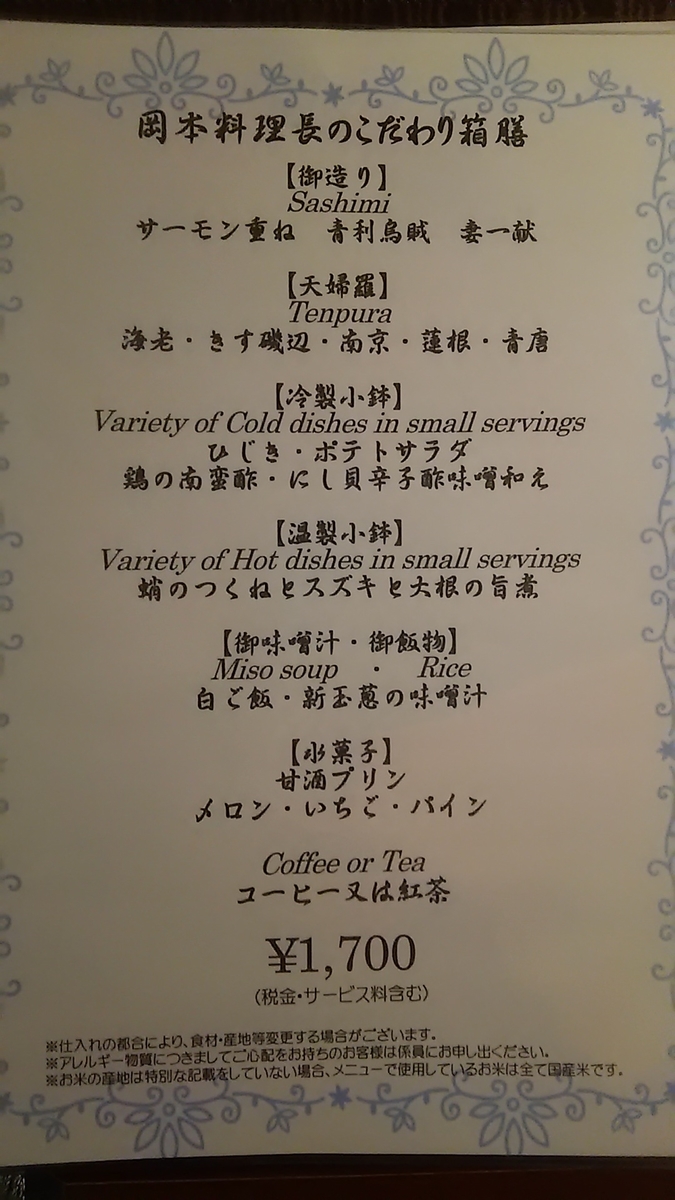 岡本料理長のこだわり箱膳
【御造り】
Sashimi
サーモン重ね　青利烏賊　妻一献
【天婦羅】
Tenpura
海老・きす磯辺・南京・蓮根・青唐
【冷製小鉢】
Variety of Cold dishes in small servings
ひじき・ポテトサラダ
鶏の南蛮酢・にし貝辛子酢味噌和え
【温製小鉢】
Variety of Hot dishes in small servings
蛸のつくねとスズキと大根の旨煮
【御味噌汁・御飯物】
Miso soup　・　Rice
白ご飯・新玉葱の味噌汁
【水菓子】
甘酒プリン
メロン・いちご・パイン
Coffee or Tea
コーヒー又は紅茶
¥1,700
（税金・サービス料含む）
※仕入れの都合により、食材・産地等変更する場合がございます。
※アレルギー物質につきましてご心配をお持ちのお客様は係員にお申し出ください。
※お米の産地は特別な記載をしていない場合、メニューで使用しているお米は全て国産米です。